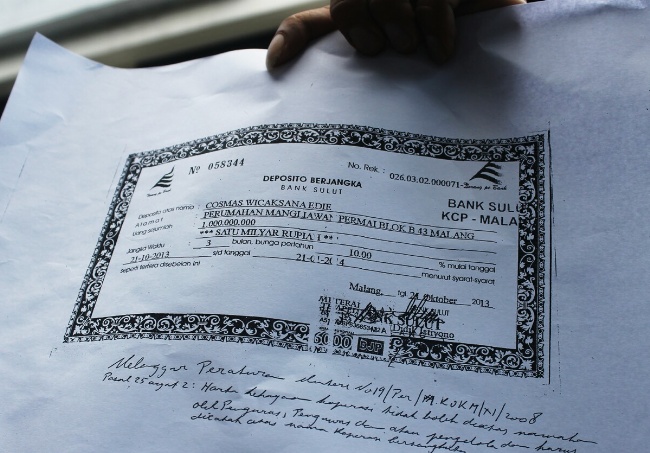 No 058344
No. Rek. : 026.03.02.000071-
DEPOSITO BERJANGKA
BANK SULUT
BANK SULU
KCP - MALA
Deposito atas nama : COSMAS WICAKSANA EDIE
A l a m a t : PERUMAHAN MANGLIAWAN PERMAI BLOK B 43 MALANG
Uang sejumlah 1.000.000.000
*** SATU MILYAR RUPIA
Jangka Waktu 3 bulan, bunga pertahun 10.00 % mulai tanggal
21-10-2013 s/d tanggal menurut syarat-syarat
seperti tertera disebelah ini
Malang, tgl Oktober 2013
METERAI
6000 DJP
Melanggar Peraturan Menteri No 19/Per/M.KUKM/XI/2008
Pasal 25 ayat 2 : Harta kekayaan koperasi tidak boleh diatas namakan
oleh Pengurus, Pengawas dan atau pengelola dan harus
dicatat atas nama Koperasi